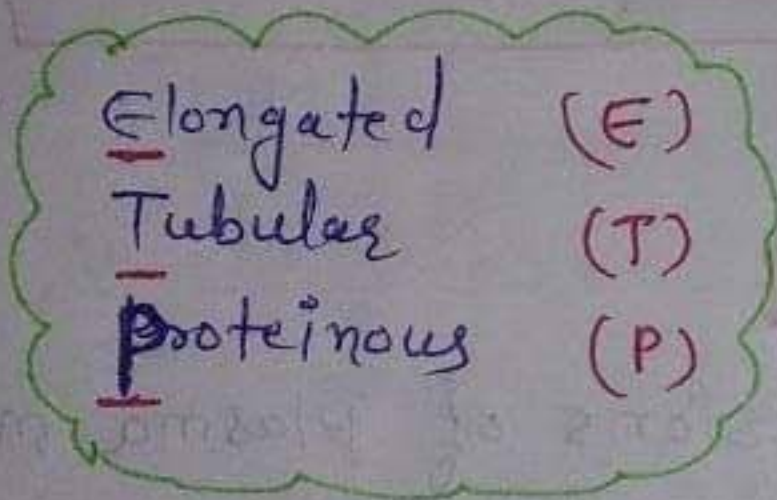 Elongated (E)
Tubular (T)
Proteinous (P)